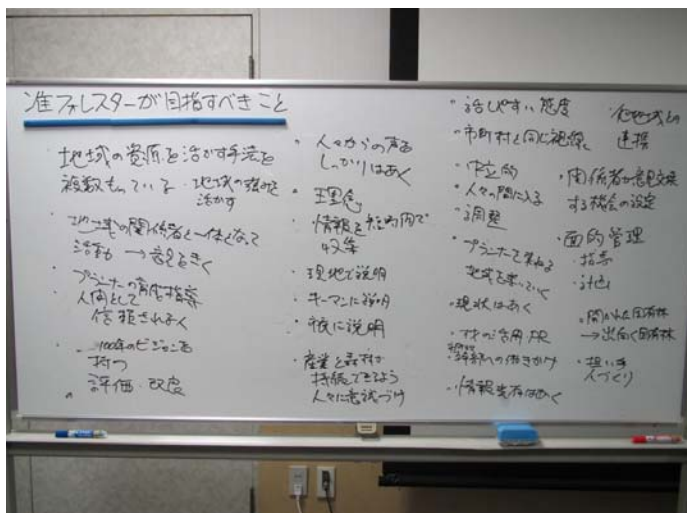 准フォレスターが目指すべきこと
・地域の資源を活かす手法を
複数もっている
・地域の強みを
活かす
・地域の関係者と一体となって
活動 → 意見をきく
・プランナーの育成指導
・人間として
信頼される
・100年のビジョンを
持つ
評価・改良
・人々からの声を
しっかりはあく
・理念
・情報を短時間で
収集
・現地で説明
・キーマンに説明
・夜に説明
・産業と森林が
持続できるよう
人々に意識づけ
・話しやすい態度
・市町村と同じ視線
・中立的
・人々の間に入る
・調整
・プランナーと
地域を
・現状はあく
・材の活用、PR
・幹部への働きかけ
・情報共有
・他地域との
連携
・関係者が意見交換
する機会の設定
・面的管理
・指導
・計画
・開かれた国有林
→出向く国有林
・担い手
人づくり